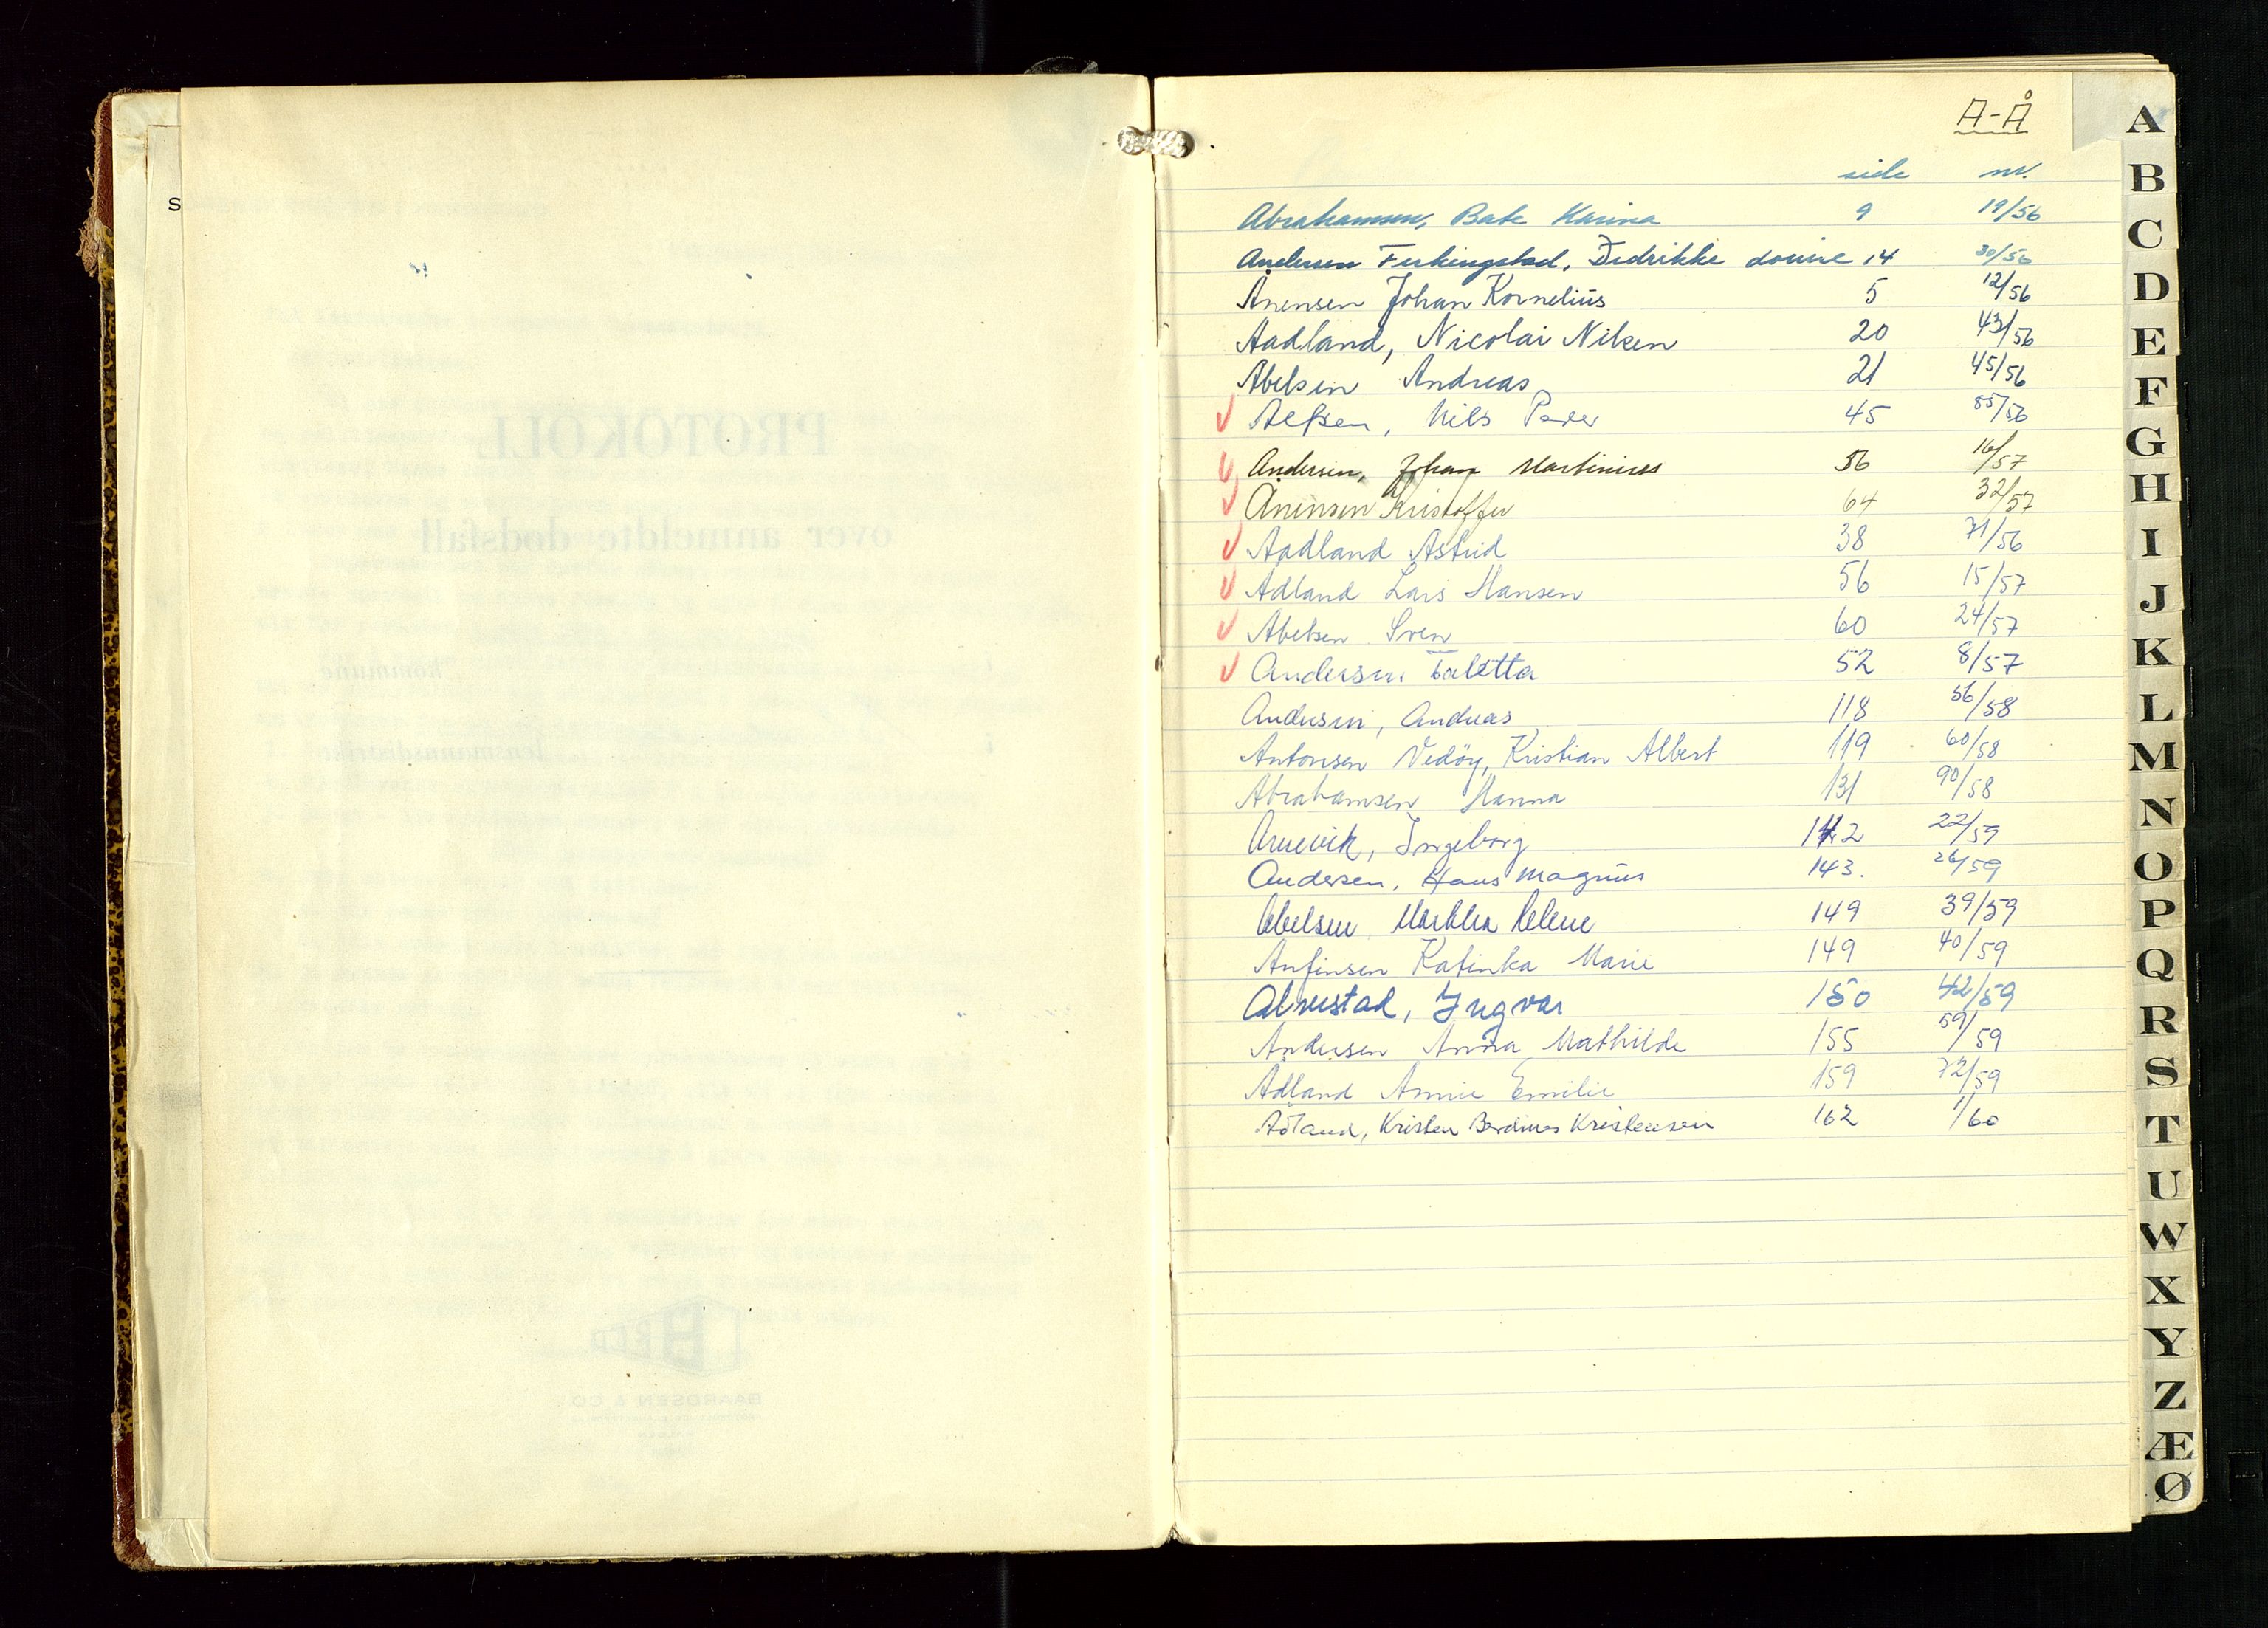 S
A-Å
side nr.
Abrahamsen, Karina 9 19/56
Andersen Ferkingstad, Dedrikke Louise 14 30/56
Ånensen Johan Kornelius 5 12/56
Aadland, Nicolai Nilsen 20 43/56
Abelsen Andreas 21 45/56
Alfsen, Nils Peder 45 85/56
Andersen, Johan Martinius 56 16/57
Ånensen Kristoffer 64 32/57
Aadland Astrid 38 71/56
Ådland Lars Hansen 56 15/57
Abelsen Sven 60 24/57
Andersen Taletta 52 8/57
Andersen, Andreas 118 56/58
Antonsen Vedøy, Kristian Albert 119 60/58
Abrahamsen Hanna 131 90/58
Arnevik, Ingeborg 142 22/59
Andersen, Hans Magnus 143. 26/59
Abelsen Martha Helene 149 39/59
Anfinsen Katinka Marie 149 40/59
Alnestad, Ingvar 150 42/59
Andersen Anna Mathilde 155 59/59
Ådland Annie Emilie 159 72/59
Kristen Berdines Kristensen 162 1/60
A
B
C
D
E
F
G
H
I
J
K
L
M
N
O
P
Q
R
S
T
U
W
X
Y
Z
Æ
Ø